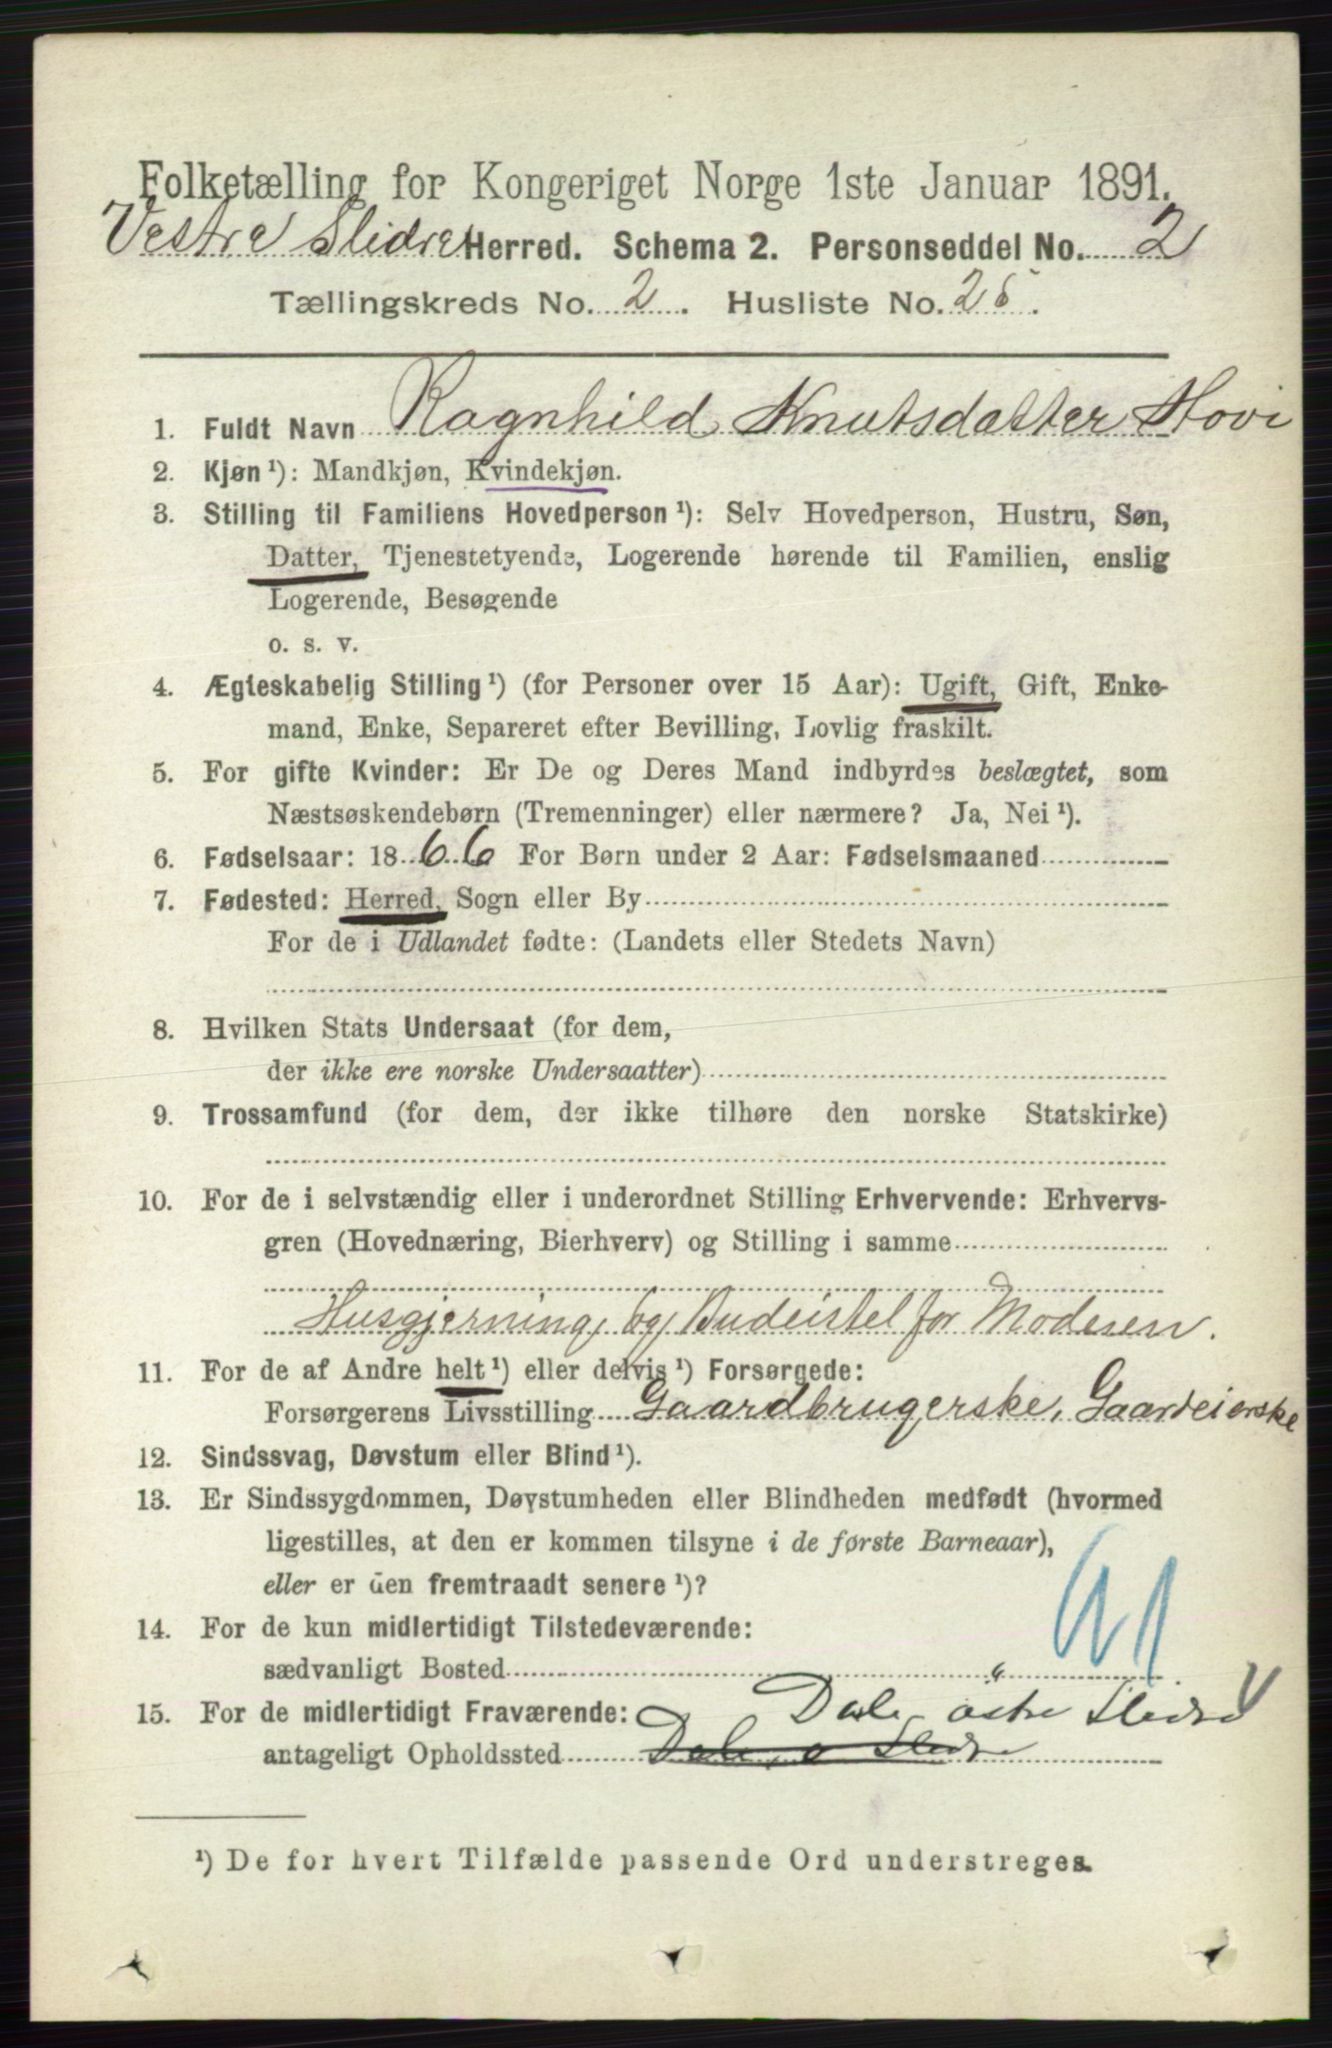 Folketælling for Kongeriget Norge 1ste Januar 1891.
Vestre Slidre Herred. Schema 2. Personseddel No. 2
Tællingskreds No. 2. Husliste No. 25.
1. Fuldt Navn Ragnhild Knutsdatter Hovi
2. Kjøn ¹): Mandkjøn, Kvindekjøn.
3. Stilling til Familiens Hovedperson ¹): Selv Hovedperson, Hustru, Søn,
Datter, Tjenestetyende, Logerende hørende til Familien, enslig
Logerende, Besøgende
o. s. v.
4. Ægteskabelig Stilling ¹) (for Personer over 15 Aar): Ugift, Gift, Enke-
mand, Enke, Separeret efter Bevilling, Lovlig fraskilt.
5. For gifte Kvinder: Er De og Deres Mand indbyrdes beslægtet, som
Næstsøskendebørn (Tremenninger) eller nærmere? Ja, Nei ¹).
6. Fødselsaar: 1866 For Børn under 2 Aar: Fødselsmaaned
7. Fødested: Herred, Sogn eller By
For de i Udlandet fødte: (Landets eller Stedets Navn)
8. Hvilken Stats Undersaat (for dem,
der ikke ere norske Undersaatter)
9. Trossamfund (for dem, der ikke tilhøre den norske Statskirke)
10. For de i selvstændig eller i underordnet Stilling Erhvervende: Erhvervs-
gren (Hovednæring, Bierhverv) og Stilling i samme
Husgjerning og Budeistel for Moderen.
11. For de af Andre helt ¹) eller delvis ¹) Forsørgede:
Forsørgerens Livsstilling Gaardbrugerske, Gaardeierske
12. Sindssvag, Døvstum eller Blind ¹).
13. Er Sindssygdommen, Døvstumheden eller Blindheden medfødt (hvormed
ligestilles, at den er kommen tilsyne i de første Barneaar),
eller er den fremtraadt senere ¹)?
14. For de kun midlertidigt Tilstedeværende:
sædvanligt Bosted "
15. For de midlertidigt Fraværende: Dale, østre Slidre
antageligt Opholdssted Dale, ø Slidre
¹) De for hvert Tilfælde passende Ord understreges.